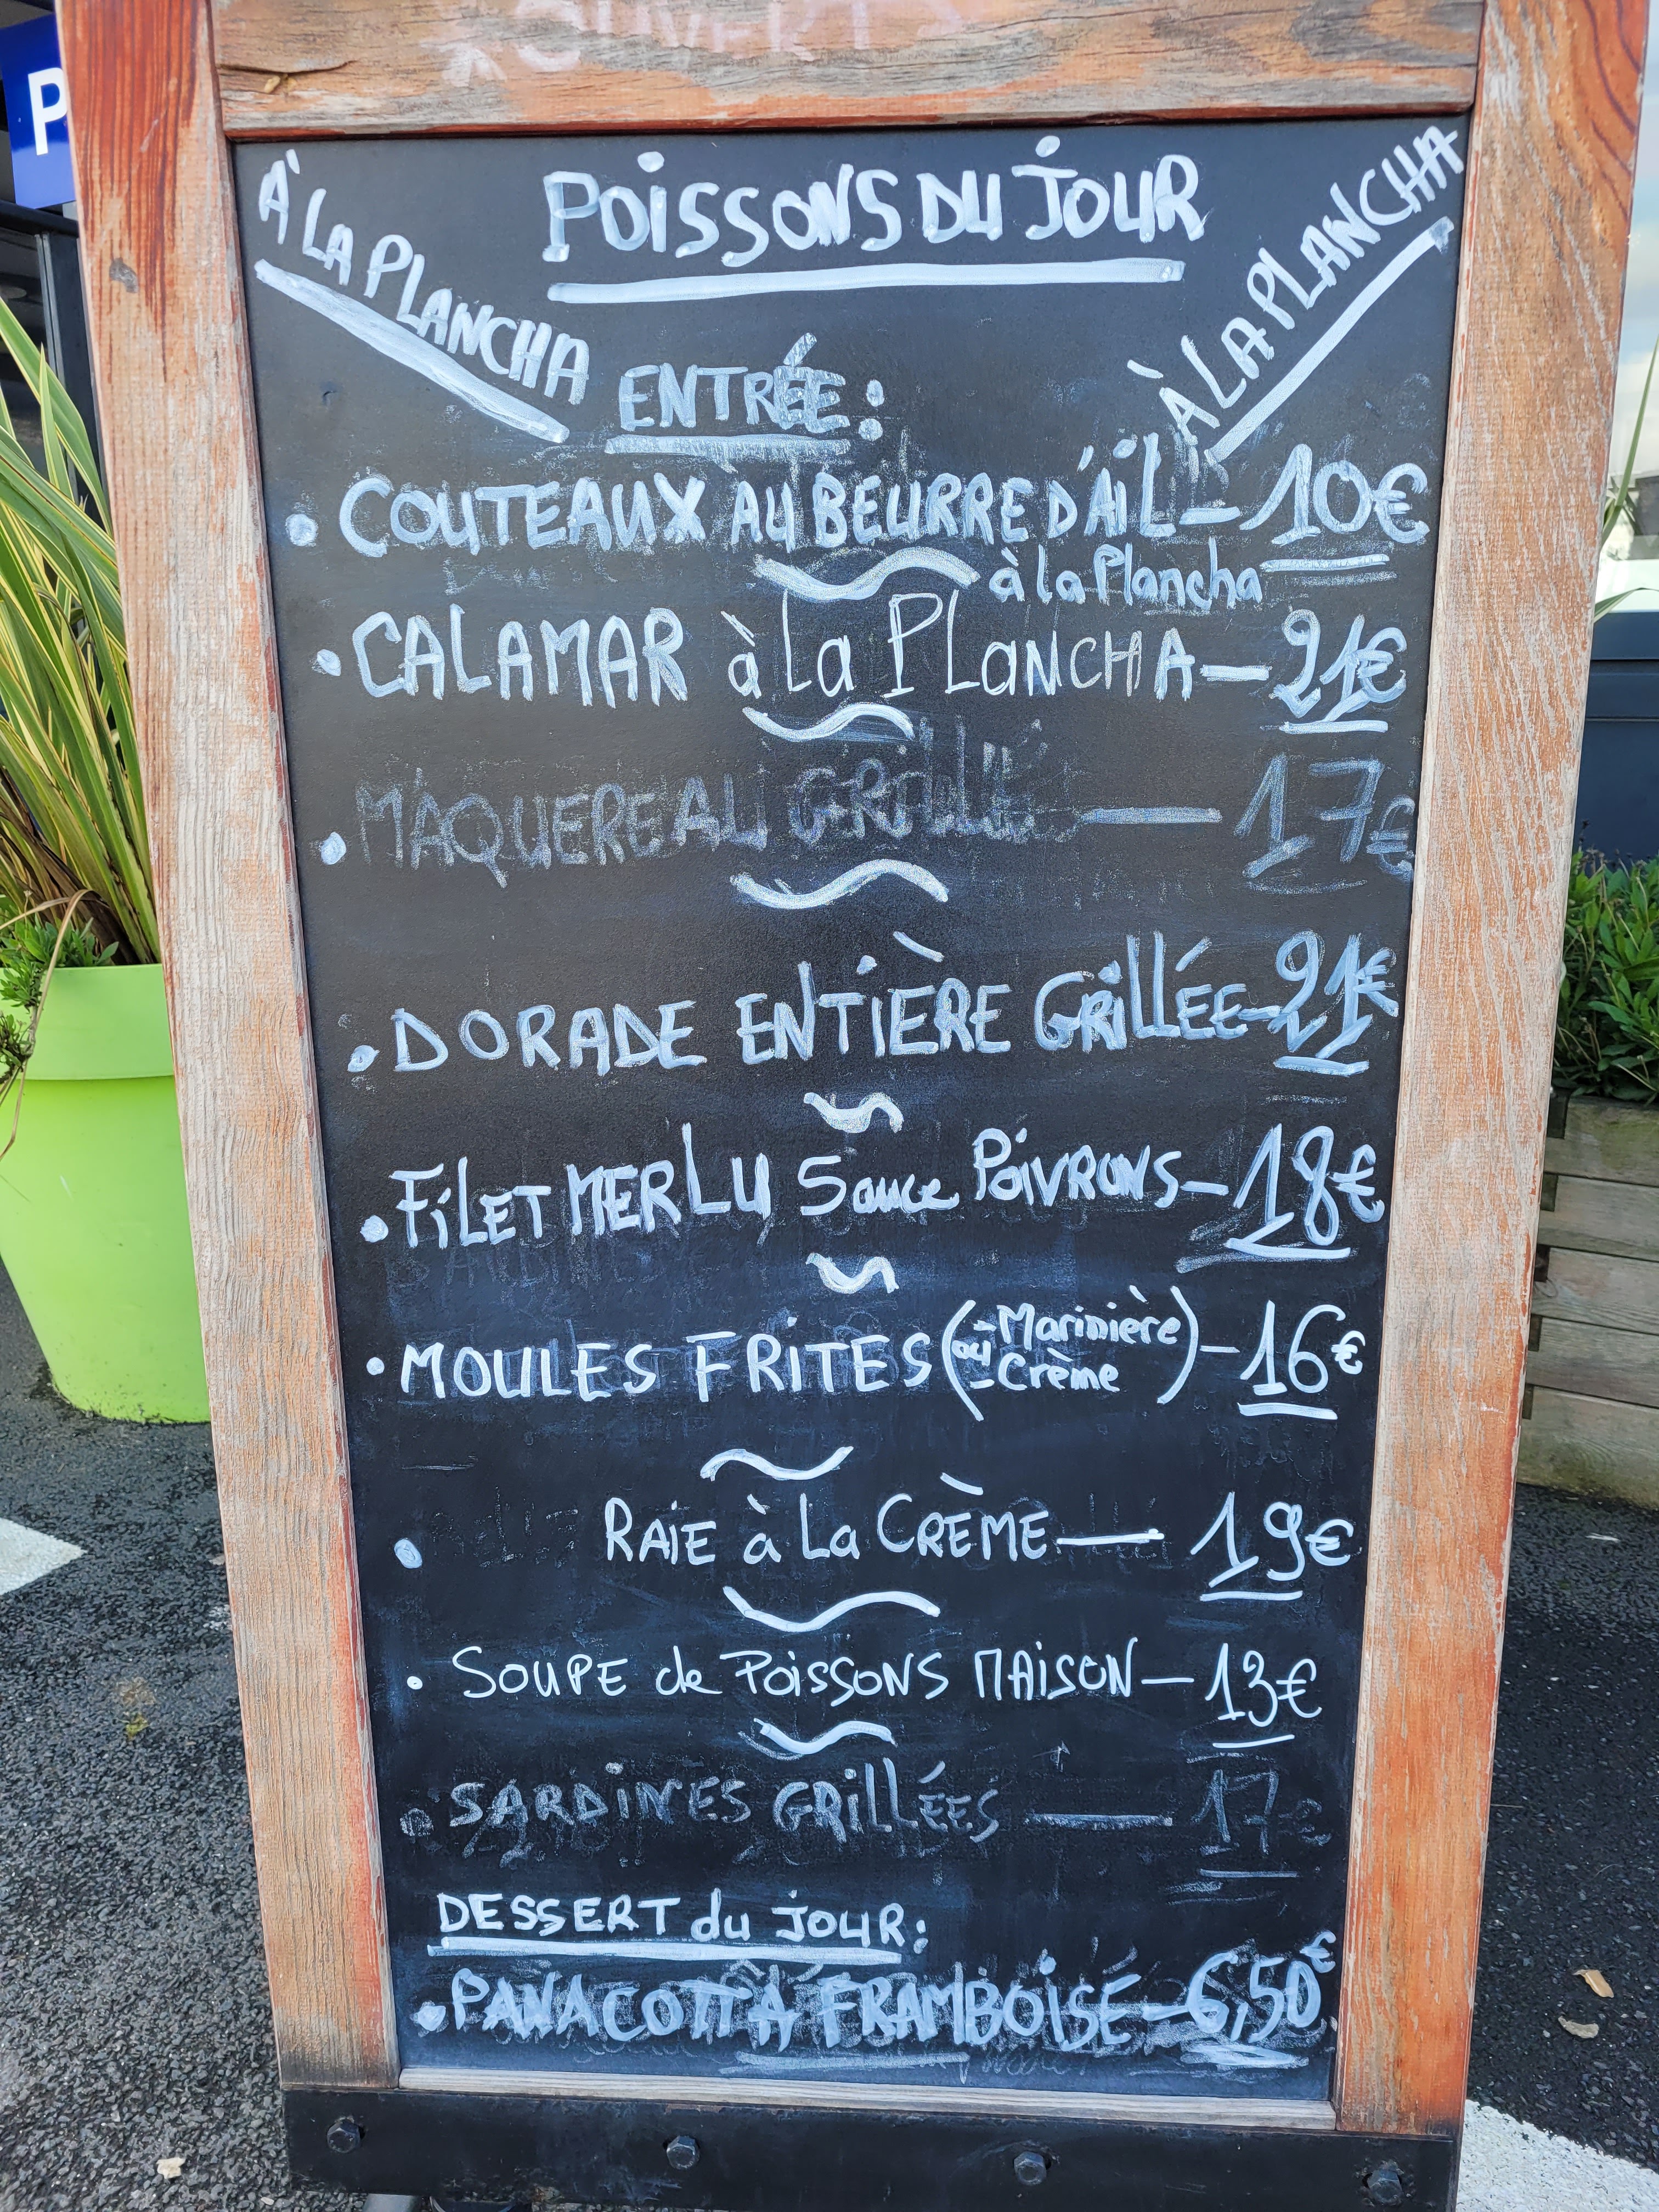 OUVERT
P
À LA PLANCHA
POISSONS DU JOUR
À LA PLANCHA
ENTRÉE:
• COUTEAUX AU BEURRE D'AIL - 10€
à la Plancha
• CALAMAR à La PLANCHA - 21€
• MAQUEREAU GRILLÉ — 17€
• DORADE ENTIÈRE GRILLÉE - 21€
• FILET MERLU Sauce POIVRONS - 18€
• MOULES FRITES (- Marinière ou - Crème) - 16€
• RAIE à La CRÈME — 19€
• SOUPE de POISSONS MAISON - 13€
• SARDINES GRILLÉES — 17€
DESSERT du JOUR:
• PANACOTTA FRAMBOISE - 6,50€